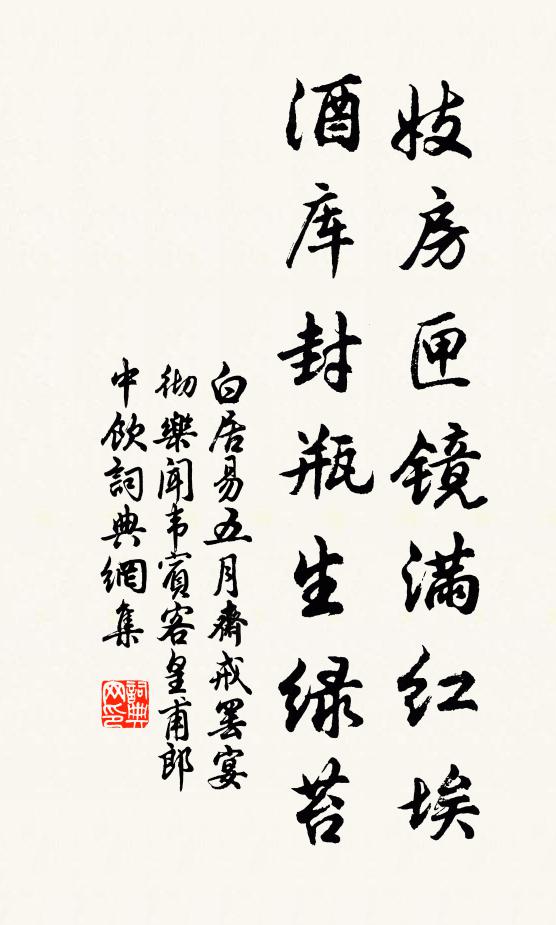 妓房匣镜满红埃
酒库封瓶生绿苔
白居易五月齋戒罢宴
彻樂闻韦賓客皇甫郎
中飲詞典網集
詞典网印